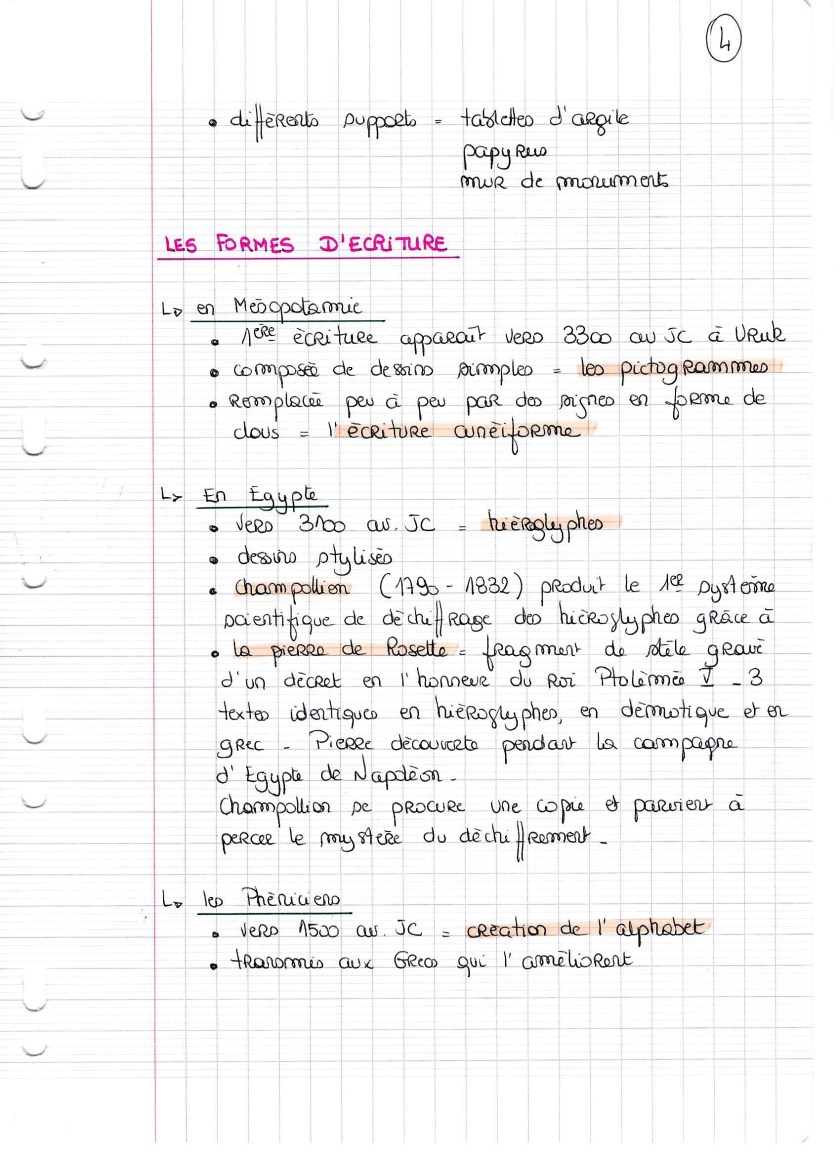 4
• différents supports = tablettes d'argile
papyrus
mur de monuments
LES FORMES D'ECRITURE
↳ en Mésopotamie
• 1ère écriture apparaît vers 3300 av JC à Uruk
• composée de dessins simples = les pictogrammes
• Remplacée peu à peu par des signes en forme de
clous = l'écriture cunéiforme
↳ En Egypte
• vers 3100 av. JC = hiéroglyphes
• dessins stylisés
• Champollion (1790 - 1832) produit le 1er système
scientifique de déchiffrage des hiéroglyphes grâce à
• la pierre de Rosette = fragment de stèle gravé
d'un décret en l'honneur du Roi Ptolémée V - 3
textes identiques en hiéroglyphes, en démotique et en
grec - Pierre découverte pendant la campagne
d'Egypte de Napoléon -
Champollion se procure une copie et parvient à
percer le mystère du déchiffrement -
↳ les Phéniciens
• vers 1500 av. JC = création de l'alphabet
• transmis aux Grecs qui l'améliorent